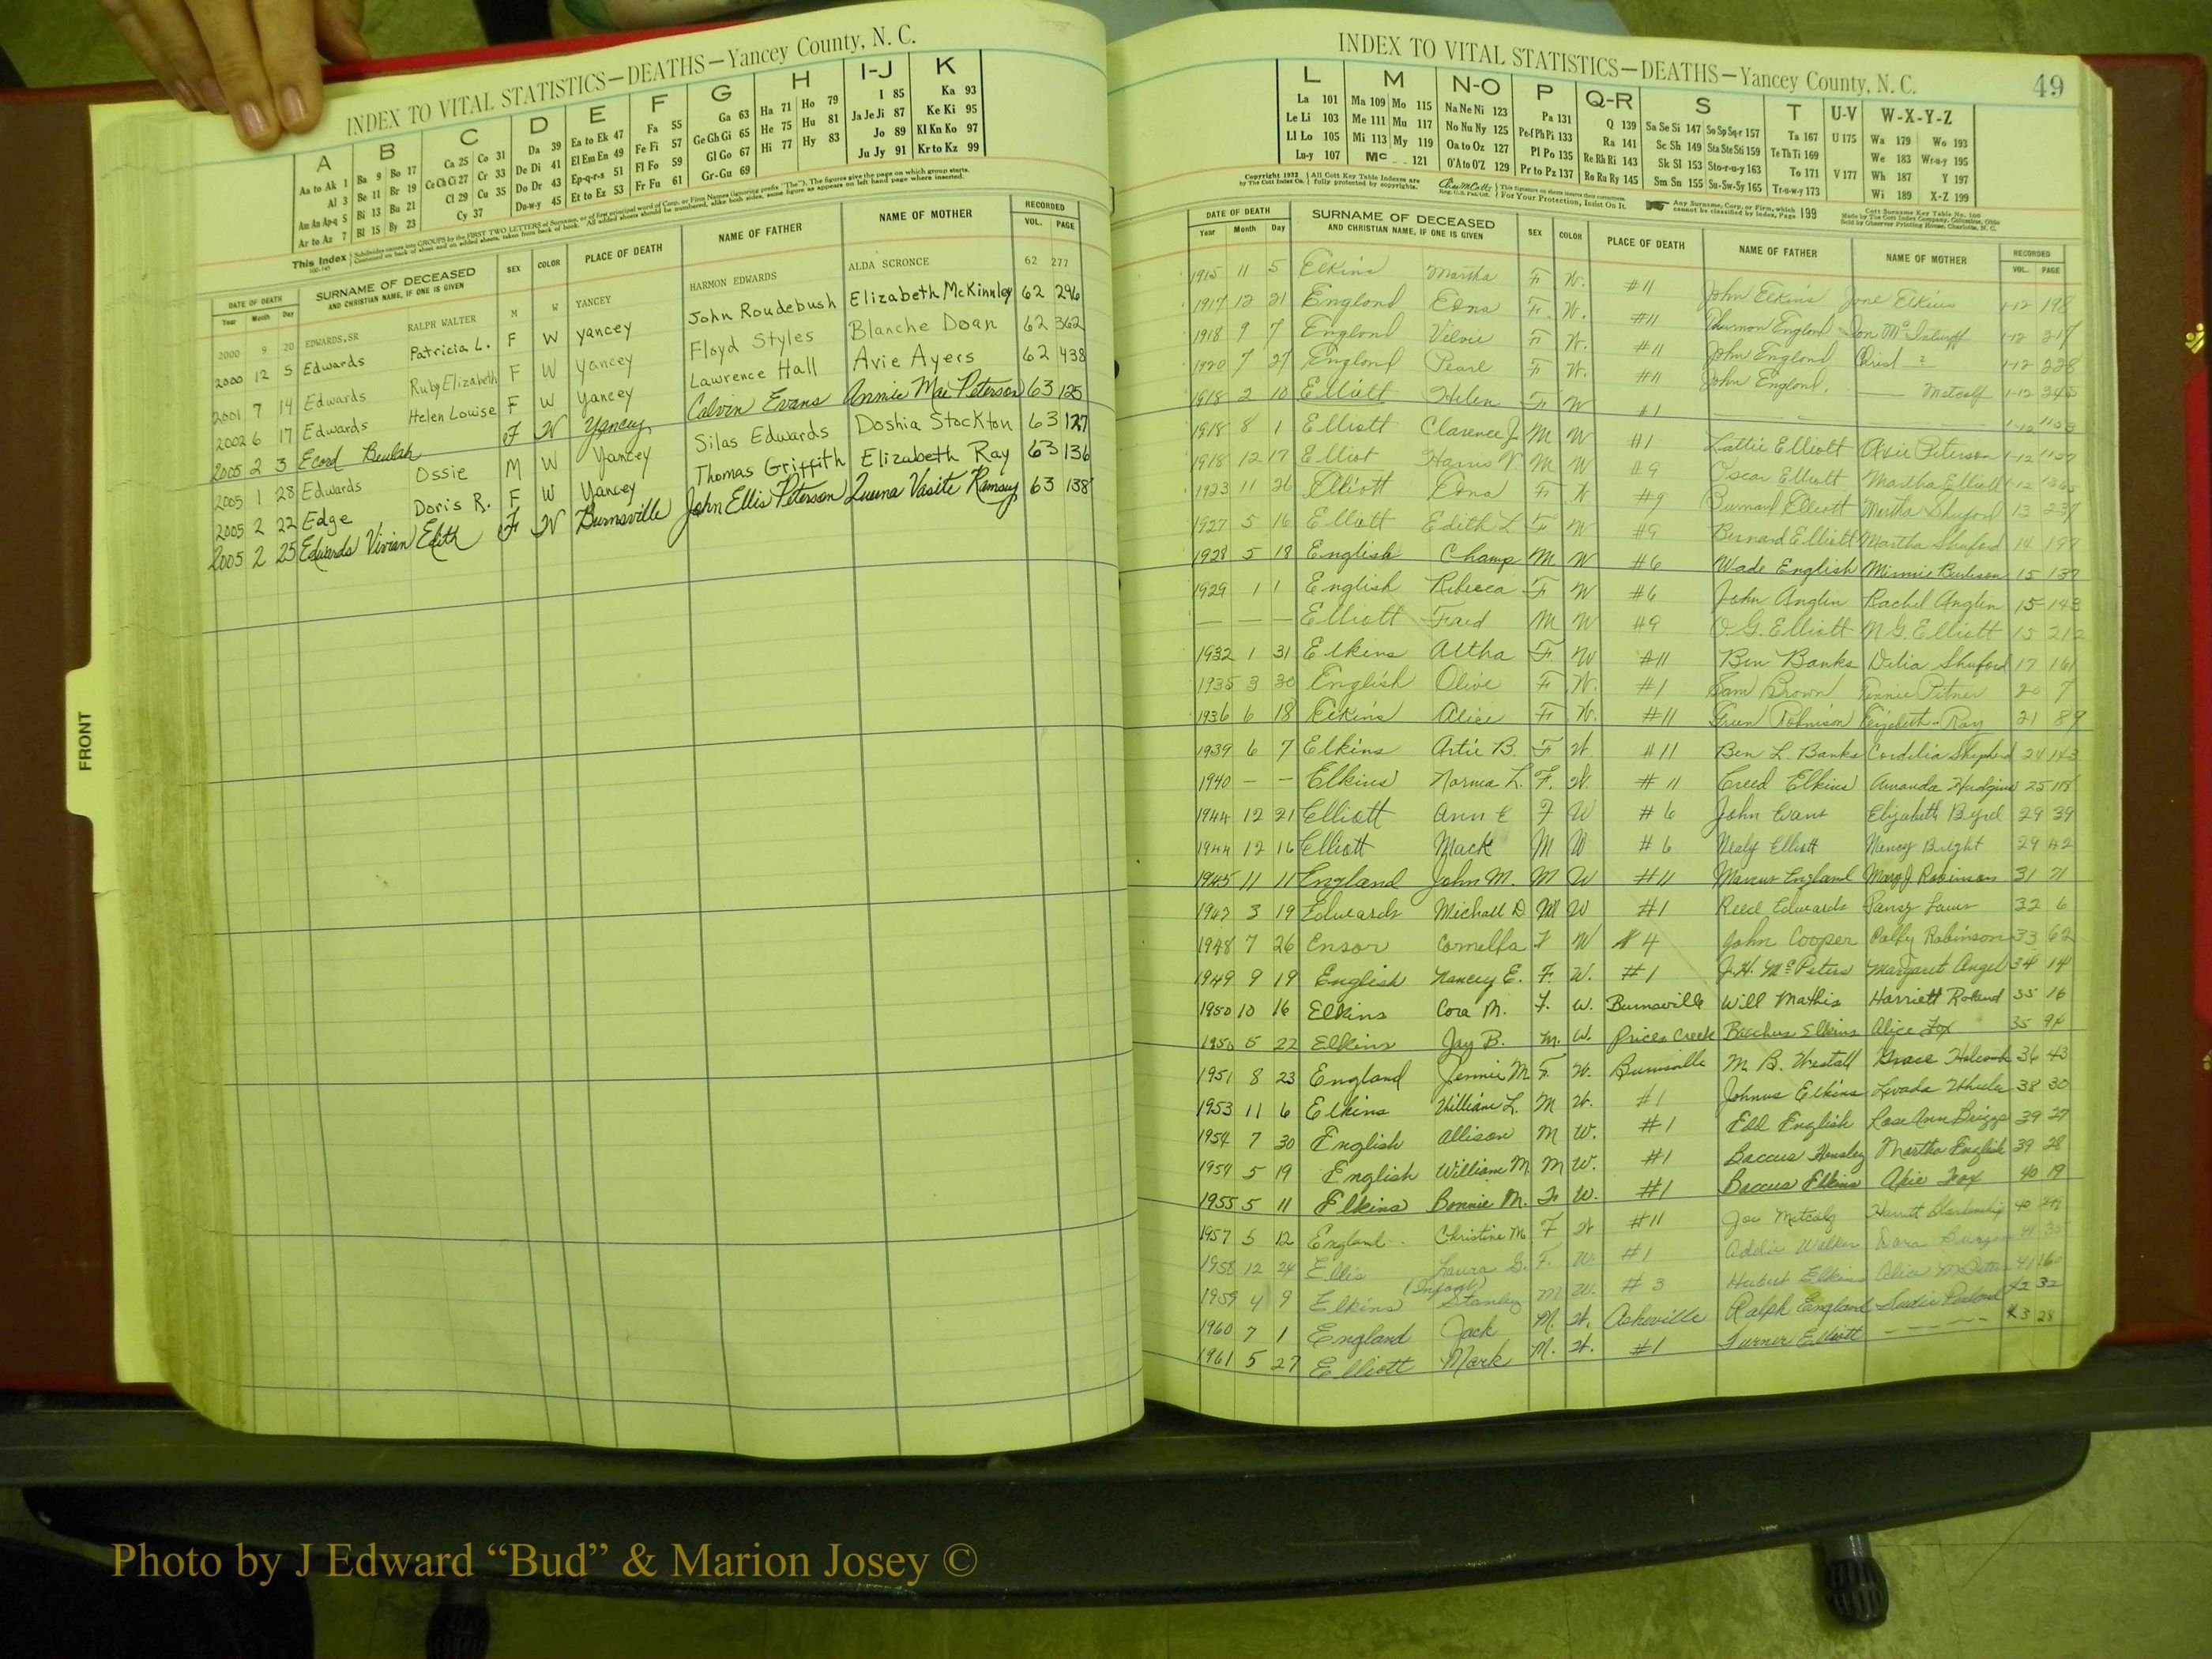 INDEX TO VITAL STATISTICS—DEATHS—Yancey County, N. C.
A B C D E F G H I-J K
Aa to Ak 1 Ba 9 Bo 17 Ca 25 Co 31 Da 39 Ea to Ek 47 Fa 55 Ga 63 Ha 71 Ho 79 I 85 Ka 93
Al 3 Be 11 Br 19 Ce Ch Ci 27 Cr 33 De Di 41 El Em En 49 Fe Fi 57 Ge Gh Gi 65 He 75 Hu 81 Ja Je Ji 87 Ke Ki 95
Am An Ap-q 5 Bi 13 Bu 21 Cl 29 Cu 35 Do Dr 43 Ep-q-r-s 51 Fl Fo 59 Gl Go 67 Hi 77 Hy 83 Jo 89 Kl Kn Ko 97
Ar to Az 7 Bl 15 By 23 Cy 37 Du-w-y 45 Et to Ez 53 Fr Fu 61 Gr-Gu 69 Ju Jy 91 Kr to Kz 99
This Index
DATE OF DEATH SURNAME OF DECEASED SEX COLOR PLACE OF DEATH NAME OF FATHER NAME OF MOTHER RECORDED
Year Month Day AND CHRISTIAN NAME, IF ONE IS GIVEN VOL. PAGE
2000 9 20 EDWARDS, SR RALPH WALTER M W YANCEY HARMON EDWARDS ALDA SCRONCE 62 277
2000 12 5 Edwards Patricia L. F W Yancey John Roudebush Elizabeth McKinnley 62 296
2001 7 14 Edwards Ruby Elizabeth F W Yancey Floyd Styles Blanche Doan 62 362
2002 6 17 Edwards Helen Louise F W Yancey Lawrence Hall Avie Ayers 62 438
2005 2 3 Ecord Beulah F W Yancey Calvin Evans Annie Mae Peterson 63 125
2005 1 28 Edwards Ossie M W Yancey Silas Edwards Doshia Stockton 63 127
2005 2 22 Edge Doris R. F W Yancey Thomas Griffith Elizabeth Ray 63 136
2005 2 25 Edwards Vivian Edith F W Burnsville John Ellis Peterson Vasite Ramsey 63 138
FRONT
INDEX TO VITAL STATISTICS—DEATHS—Yancey County, N. C. 49
L M N-O P Q-R S T U-V W-X-Y-Z
La 101 Ma 109 Mo 115 Na Ne Ni 123 Pa 131 Q 139 Sa Se Si 147 So Sp Sq-r 157 Ta 167 U 175 Wa 179 Wo 193
Le Li 103 Me 111 Mu 117 No Nu Ny 125 Pe-f Ph Pi 133 Ra 141 Sc Sh 149 Sta Ste Sti 159 Te Th Ti 169 We 183 Wr-u-y 195
Ll Lo 105 Mi 113 My 119 Oa to Oz 127 Pl Po 135 Re Rh Ri 143 Sk Sl 153 Sto-r-u-y 163 To 171 V 177 Wh 187 Y 197
Lu-y 107 Mc 121 O'A to O'Z 129 Pr to Pz 137 Ro Ru Ry 145 Sm Sn 155 Su-Sw-Sy 165 Tr-u-w-y 173 Wi 189 X-Z 199
DATE OF DEATH SURNAME OF DECEASED SEX COLOR PLACE OF DEATH NAME OF FATHER NAME OF MOTHER RECORDED
Year Month Day AND CHRISTIAN NAME, IF ONE IS GIVEN VOL. PAGE
1915 11 5 Elkins Martha F W. #11 John Elkins Jane Elkins 1-12 198
1917 12 21 England Edna F. W. #11 England 1-12 217
1918 9 7 England F W. #11 John England 1-12 228
1920 7 27 England Pearl F W. #11 John England. Metcalf 1-12 345
1918 2 10 Elliott Helen F W #1 1-12
1918 8 1 Elliott Clarence J. M W #1 Elliott Peterson 1-12
1918 12 17 Elliot Harris V. M W #9 Oscar Elliott Martha Elliott 1-12
1923 11 26 Elliott Edna F W #9 Elliott Martha Shuford 13 237
1927 5 16 Elliott Edith L. F W #9 Bernard Elliott Martha Shuford 14 197
1928 5 18 English Champ M W #6 Wade English Minnie Burleson 15 137
1929 1 1 English Rebecca F W #6 John Anglin Rachel Anglin 15 143
— — — Elliott M W #9 O.G. Elliott M G. Elliott 15 212
1932 1 31 Elkins Altha F. W #11 Ben Banks Delia Shuford 17 161
1935 3 30 English Olive F W. #1 Sam Brown Pitner 20 7
1936 6 18 Elkins Alice F W. #11 Green Robinson Elizabeth Ray 21 89
1939 6 7 Elkins Artie B. F W. #11 Ben L. Banks Cordelia 24 143
1940 — — Elkins Norma L. F. W. #11 Creed Elkins Amanda Hudgins 25
1944 12 21 Elliott Ann E F W #6 John Evans Elizabeth Byrd 29 39
1944 12 16 Elliott Mack M W #6 Nealy Elliott Bright 29 42
1945 11 11 England John M. M W #11 Marcus England Mary J. Robinson 31 21
1947 3 19 Edwards Michall D M W #1 Reed Edwards Pansy Laws 32 6
1948 7 26 Ensor Cornelia F W #4 John Cooper Polly Robinson 33 62
1949 9 19 English Nancy E. F. W. #1 J.H. McPeters Margaret Angel 34 14
1950 10 16 Elkins Cora M. F. W. Burnsville Will Mathis Harriett Roland 35 16
1950 5 22 Elkins Jay B. M. W. Prices Creek Bacchus Elkins Alice Fox 35 94
1951 8 23 England Jennie M. F. W. Burnsville M. B. Westall Grace Holcomb 36 43
1953 11 6 Elkins William L. M W. #1 Johnus Elkins Levada Wheeler 38 30
1954 7 30 English Allison M W. #1 Edd English Rose Ann Briggs 39 27
1954 5 19 English William M. M W. #1 Baccus Hensley Martha English 39 28
1955 5 11 Elkins Bonnie M. F W. #1 Baccus Elkins Fox 40 19
1957 5 12 England Christine M. F W #11 Joe Metcalf 40
1958 12 24 Ellis Laura G. F. W. #1 Walker 41
1959 4 9 Elkins (Infant) Stanley M W. #3 Hubert Elkins
1960 7 1 England Jack M. W. Asheville Ralph England 42 32
1961 5 27 Elliott Mark M. W. #1 Turner Elliott — — — — 43 28
Photo by J Edward “Bud” & Marion Josey ©